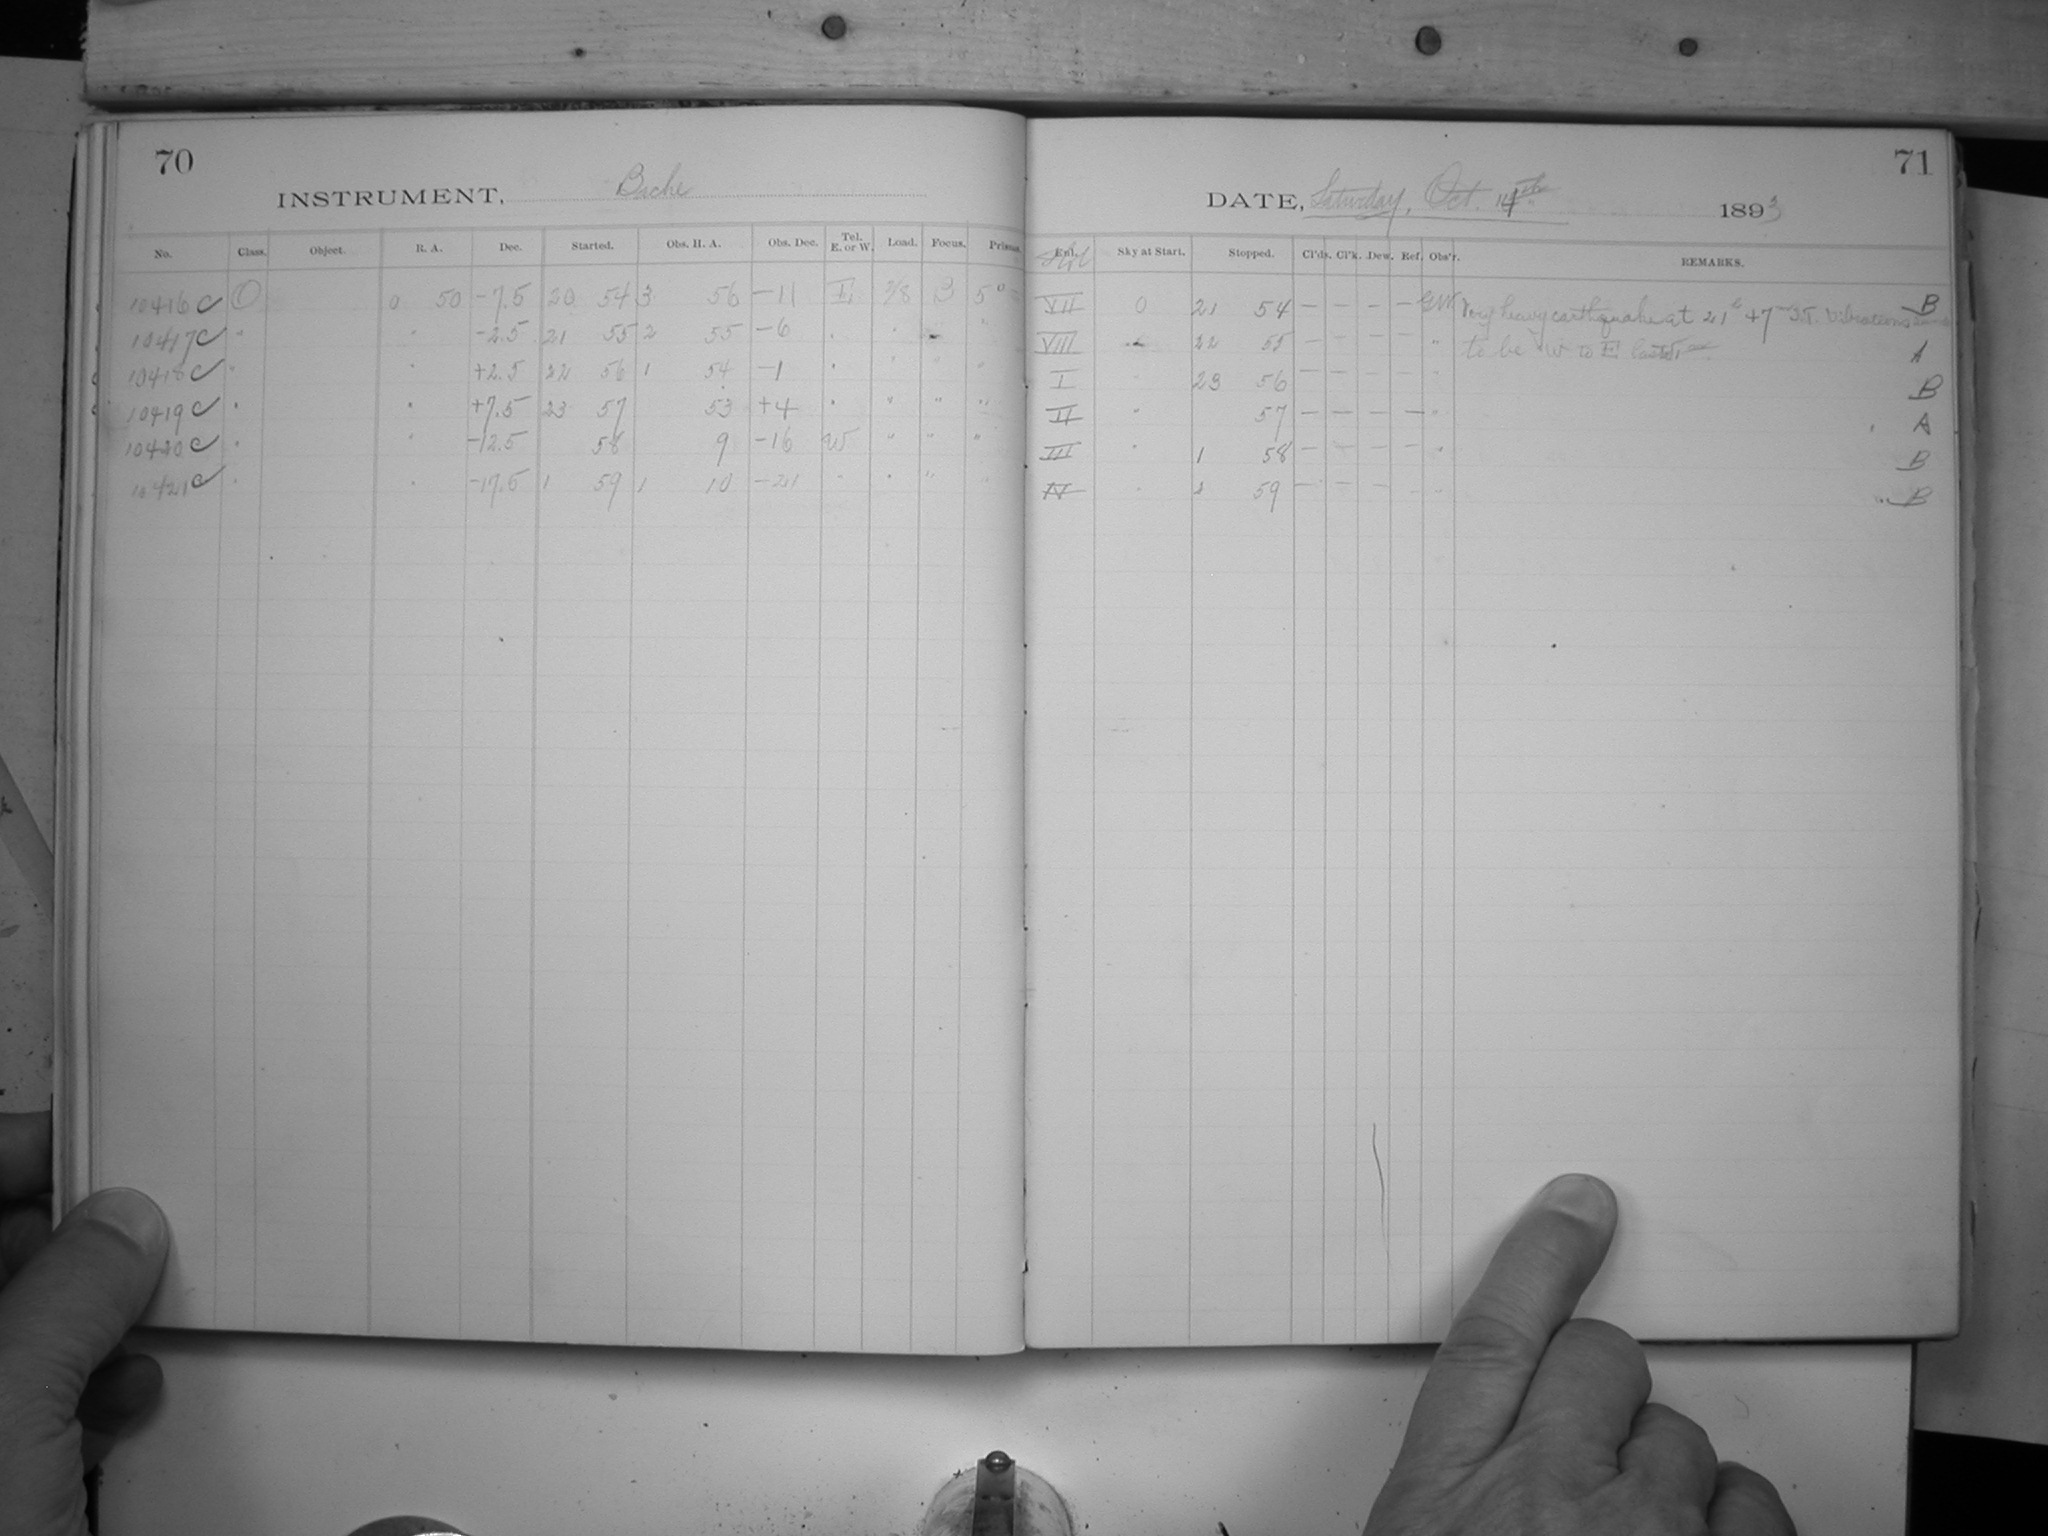 70
INSTRUMENT, Bache
No. Class. Object. R. A. Dec. Started. Obs. H. A. Obs. Dec. Tel. E. or W. Load. Focus. Prisms.
10416 C O 0 50 -7.5 20 54 3 56 -11 E. 3 5
10417 C " " -2.5 21 55 2 55 -6 " "
10418 C " " +2.5 22 56 1 54 -1 " " " "
10419 C " " +7.5 23 57 53 +4 " " " "
10420 C " " -12.5 58 9 -16 W " " "
10421 C " " -17.5 1 59 1 10 -21 " " " "
71
DATE, Saturday, Oct. 14th 1893
Enl. Sky at Start. Stopped. Cl'ds. Cl'k. Dew. Ref. Obs'r. REMARKS.
VII 0 21 54 — — — — Very heavy earthquake at 21h 47m S.T. Vibrations B
VIII 22 55 — — — — " to be W to E A
I " 23 56 — — — — " B
II " 57 — — — — " A
III " 1 58 — — — — " B
IV " 2 59 — — — — " B